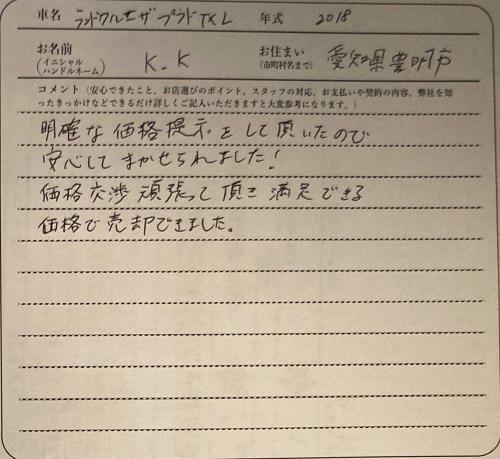 車名 ランドクルーザープラドTXL 年式 2018
お名前 (イニシャル ハンドルネーム) K.K お住まい (市町村名まで) 愛知県豊明市
コメント (安心できたこと、お店選びのポイント、スタッフの対応、お支払いや契約の内容、弊社を知
ったきっかけなどできるだけ詳しくご記入いただきますと大変参考になります。)
明確な価格提示をして頂いたので
安心してまかせられました!
価格交渉頑張って頂き満足できる
価格で売却できました。